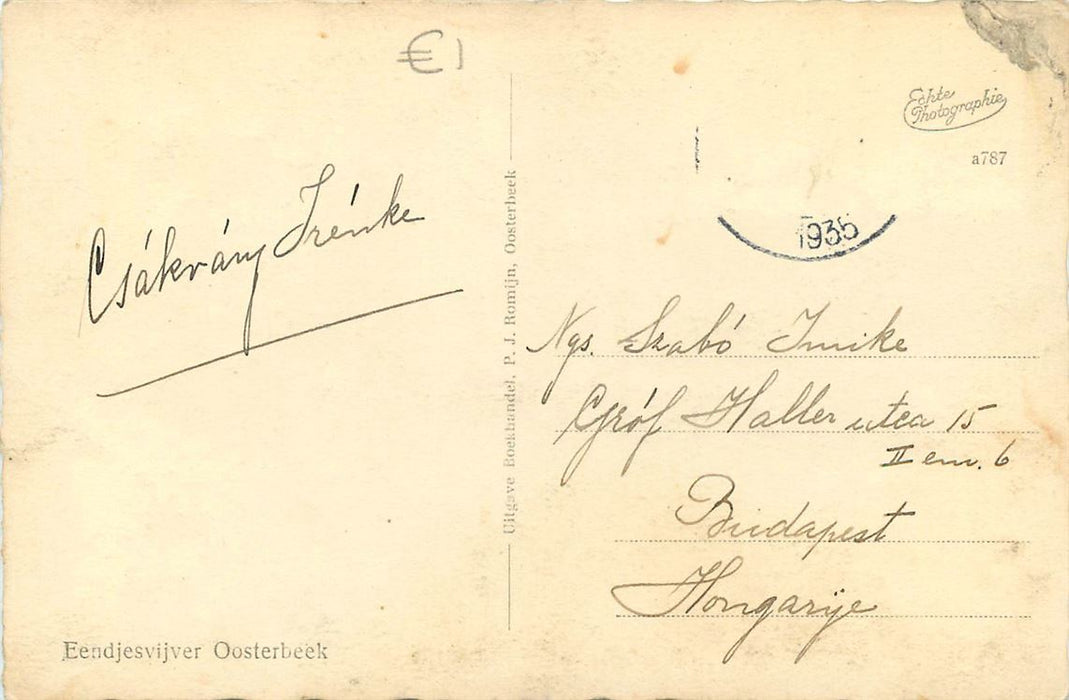 €1
Echte
Photographie
a787
1935
Csákvány Irénke
Uitgave Boekhandel, P. J. Romijn, Oosterbeek
Ngs. Szabó Imike
Gróf Haller utca 15
II em. 6
Budapest
Hongarije
Eendjesvijver Oosterbeek